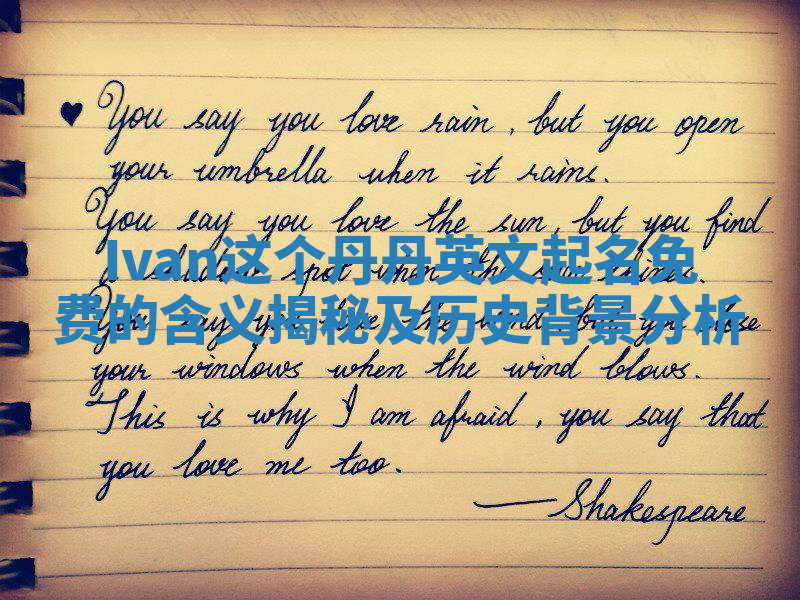 ♥ You say you love rain, but you open
your umbrella when it rains.
You say you love the sun, but you find
a shadow spot when the sun shines.
Ivan这个丹丹英文起名免
费的含义揭秘及历史背景分析
You say you love the wind, but you close
your windows when the wind blows.
This is why I am afraid, you say that
you love me too.
—Shakespeare